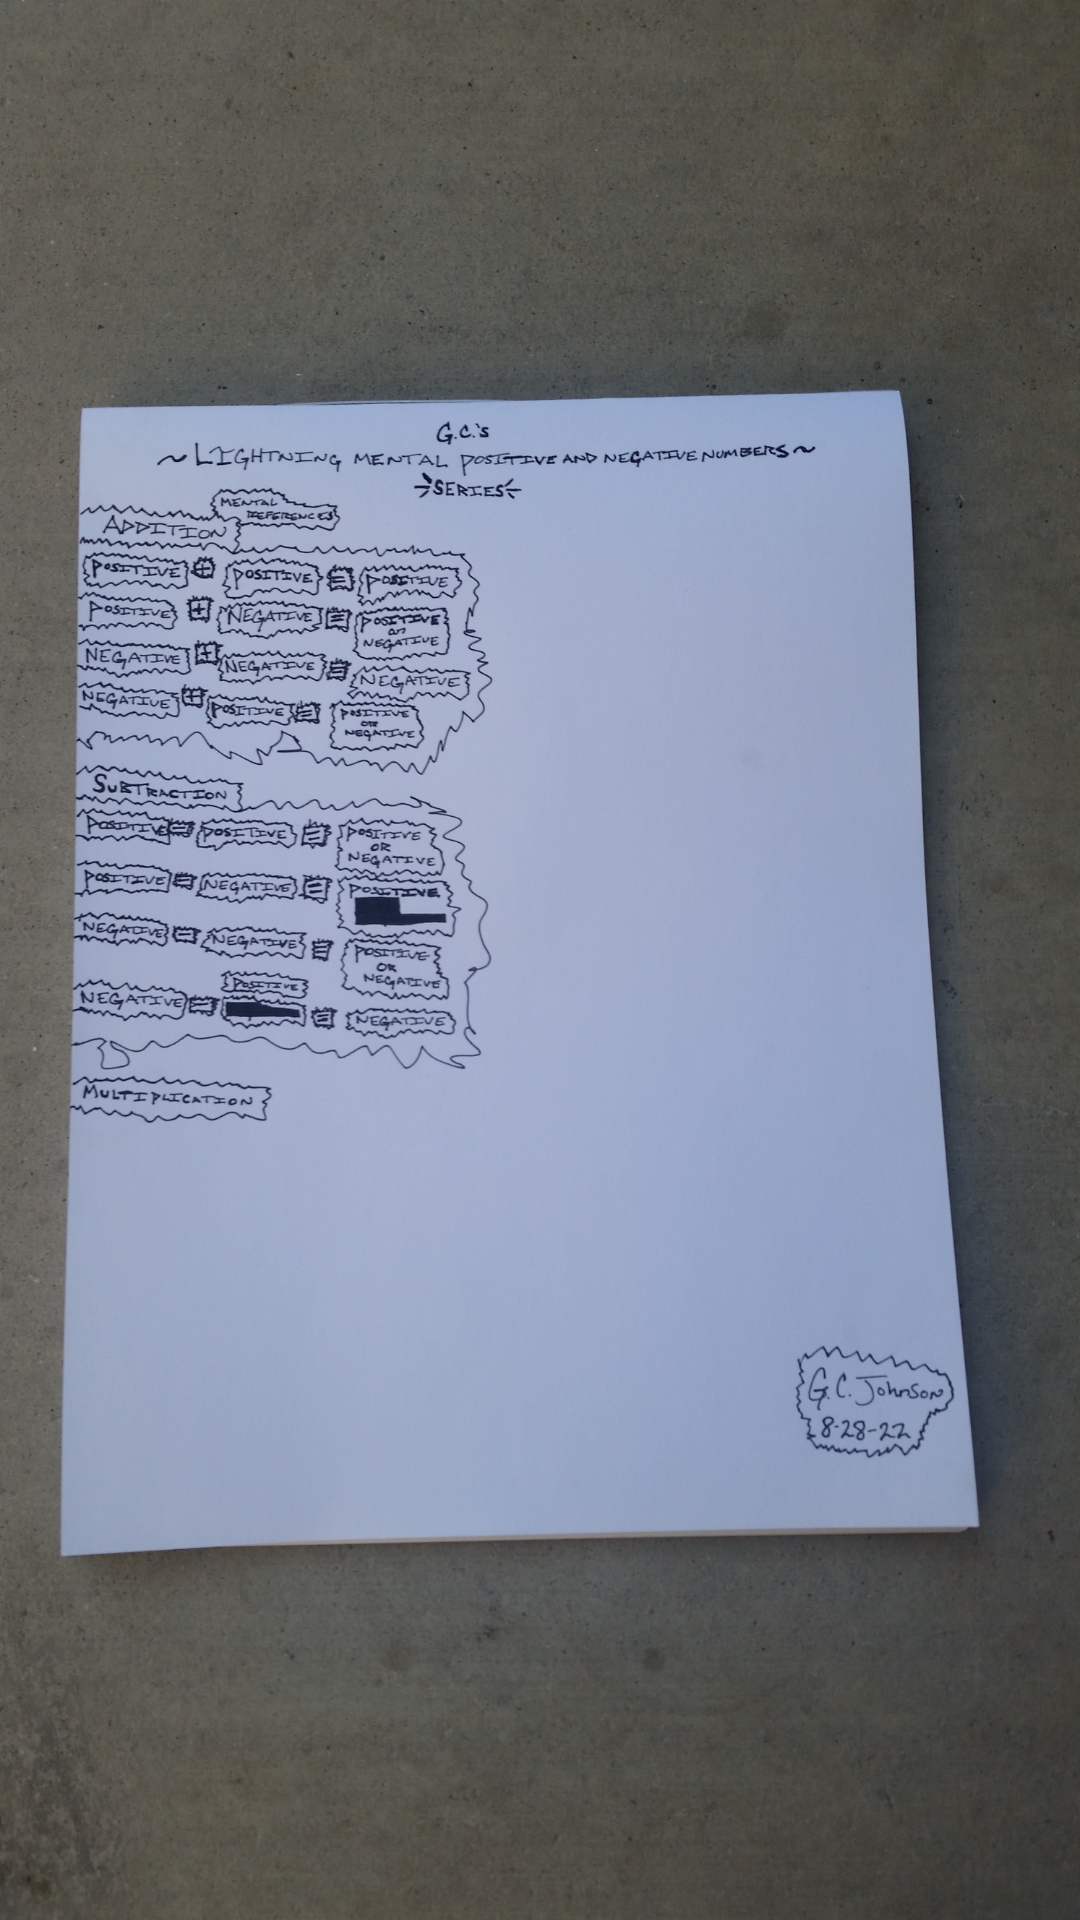 G.C.'s
~LIGHTNING MENTAL POSITIVE AND NEGATIVE NUMBERS~
SERIES
MENTAL
REFERENCES
ADDITION
POSITIVE + POSITIVE = POSITIVE
POSITIVE + NEGATIVE = POSITIVE
OR
NEGATIVE
NEGATIVE + NEGATIVE = NEGATIVE
NEGATIVE + POSITIVE = POSITIVE
OR
NEGATIVE
SUBTRACTION
POSITIVE - POSITIVE = POSITIVE
OR
NEGATIVE
POSITIVE - NEGATIVE = POSITIVE
NEGATIVE - NEGATIVE = POSITIVE
OR
NEGATIVE
POSITIVE
NEGATIVE - = NEGATIVE
MULTIPLICATION
G.C. Johnson
8-28-22